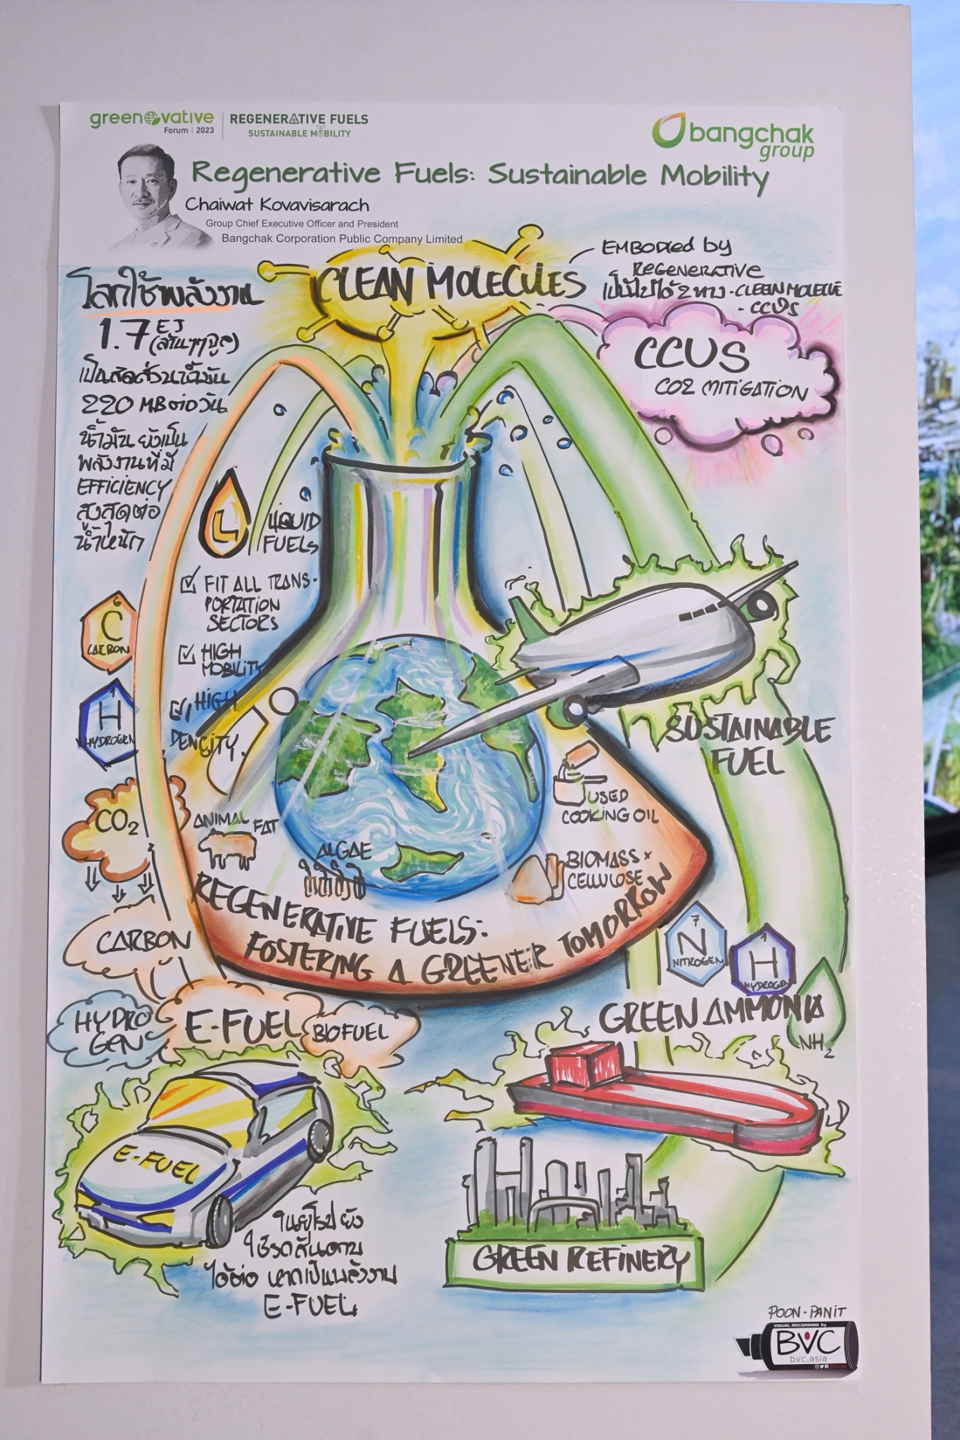 greenovative
Forum | 2023
REGENERATIVE FUELS
SUSTAINABLE MOBILITY
bangchak
group
Regenerative Fuels: Sustainable Mobility
Chaiwat Kovavisarach
Group Chief Executive Officer and President
Bangchak Corporation Public Company Limited
CLEAN MOLECULES
EMBODIED by
REGENERATIVE
เป็นไปได้ 2 ทาง - CLEEN MOLECULE
- CCUS
โลกใช้พลังงาน
1.7 EJ
(ล้านๆๆจูล)
เป็นสัดส่วนน้ำมัน
220 MB ต่อวัน
น้ำมัน ยังเป็น
พลังงานที่มี
EFFICIENCY
สูงสุดต่อ
น้ำหนัก
CCUS
CO2 MITIGATION
L
LIQUID
FUELS
FIT ALL TRANS-
PORTATION
SECTORS
HIGH
MOBILITY
HIGH
DENCITY
6
C
CARBON
1
H
HYDROGEN
CO2
CARBON
HYDRO
GEN
E-FUEL
BIOFUEL
ANIMAL FAT
ALGAE
USED
COOKING OIL
BIOMASS
CELLULOSE
REGENERATIVE FUELS:
FOSTERING A GREENER TOMORROW
SUSTAINABLE
FUEL
7
N
NITROGEN
1
H
HYDROGEN
GREEN AMMONIA
NH2
E-FUEL
ในยุโรป ยัง
ใช้รถสันดาป
ได้ต่อ หากเป็นพลังงาน
E-FUEL
GREEN REFINERY
POON-PANIT
VISUAL RECORDING by
BVC
bvc.asia